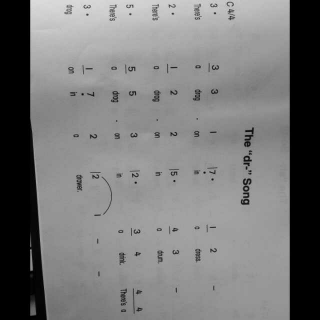 The "dr-" Song
C 4/4
3 • 3 3 1 |7 • 1 2 –
There's a drag - on in a dress.
2 • 1 2 2 |5 • 4 3 –
There's a drag - on in a drum.
5 • 5 5 3 |2 • 3 4 4 4
There's a drag - on in a drink. There's a
3 • 1 7 2 |2 1 – –
drag on in a drawer.